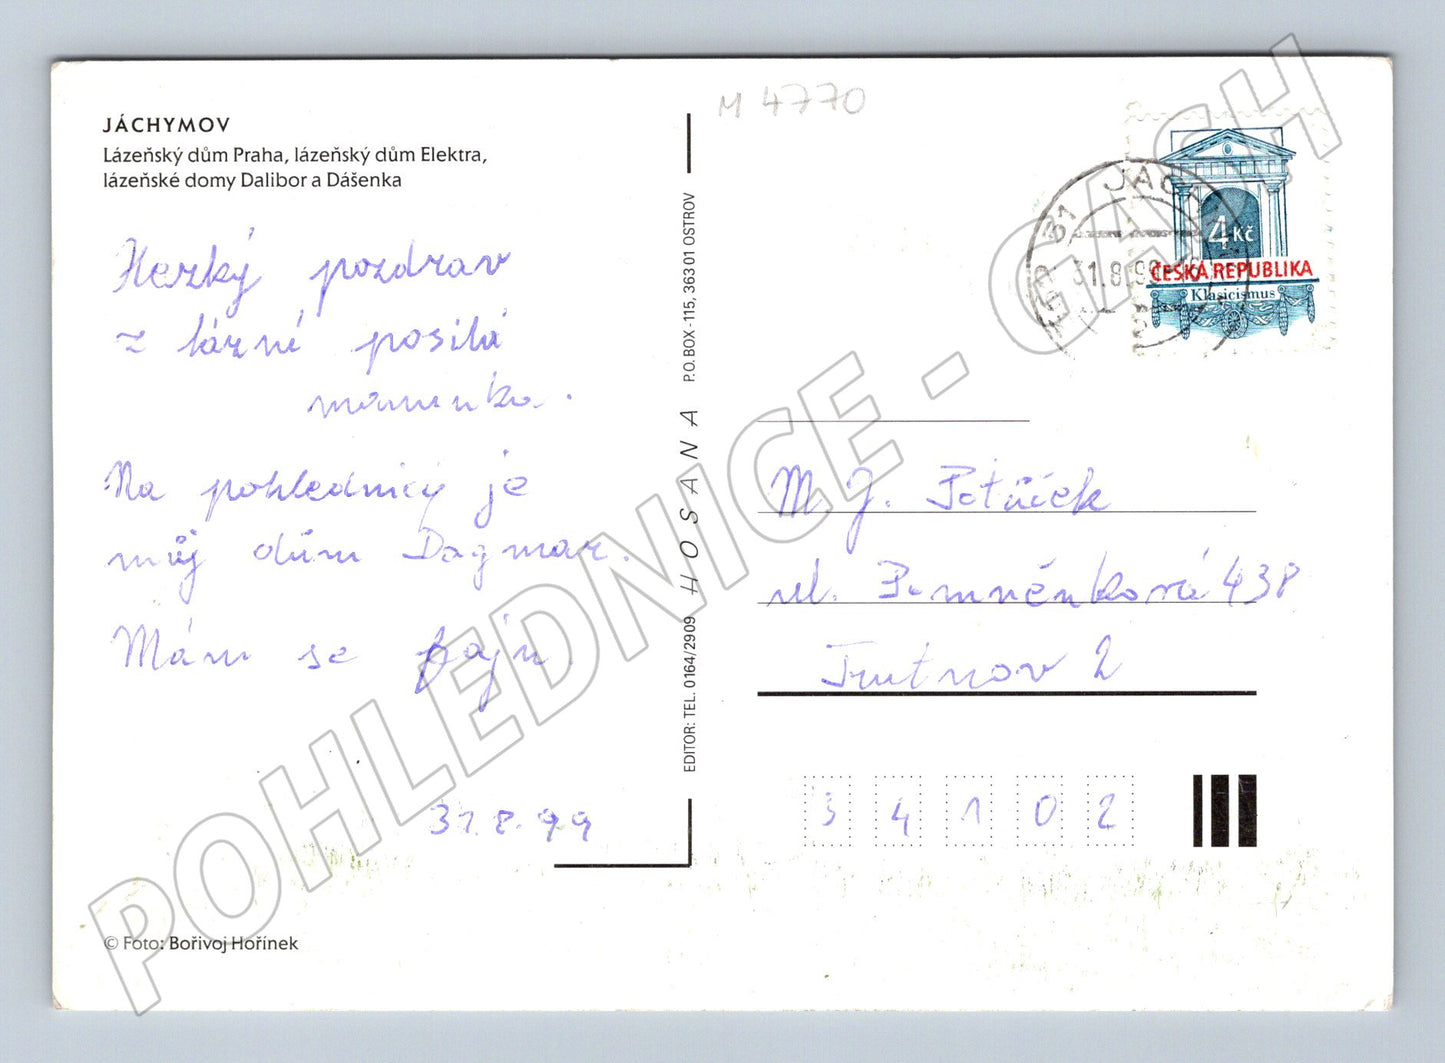 M 4770
JÁCHYMOV
Lázeňský dům Praha, lázeňský dům Elektra,
lázeňské domy Dalibor a Dášenka
Hezký pozdrav
z lázní posílá
maminka.
Na pohlednici je
můj dům Dagmar.
Mám se fajn
31.8.99
© Foto: Bořivoj Hořínek
EDITOR: TEL. 0164/2909 HOSANA P.O. BOX-115, 363 01 OSTROV
31.8.99
4 Kč
ČESKÁ REPUBLIKA
Klasicismus
M. J. Potůček
ul. Pomněnková 438
Trutnov 2
34102
POHLEDNICE - GASH